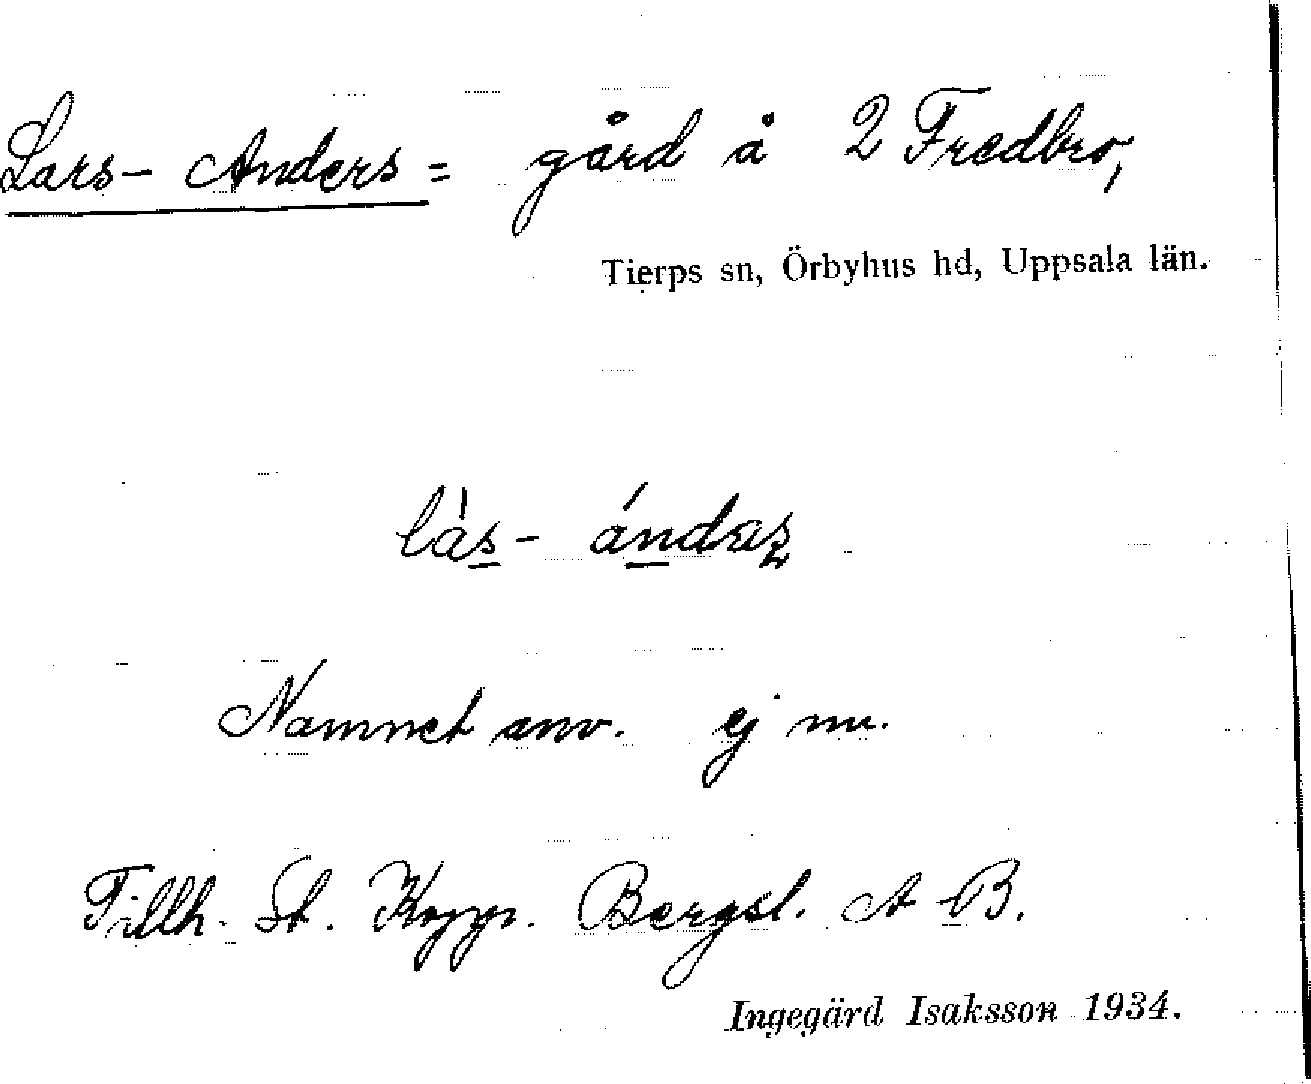 Lars- Anders = gård å 2 Fredbro,
Tierps sn, Örbyhus hd, Uppsala län.
làs- ándaz
Namnet anv. ej nu.
Tillh. St. Kopp. Bergsl. A B.
Ingegärd Isaksson 1934.